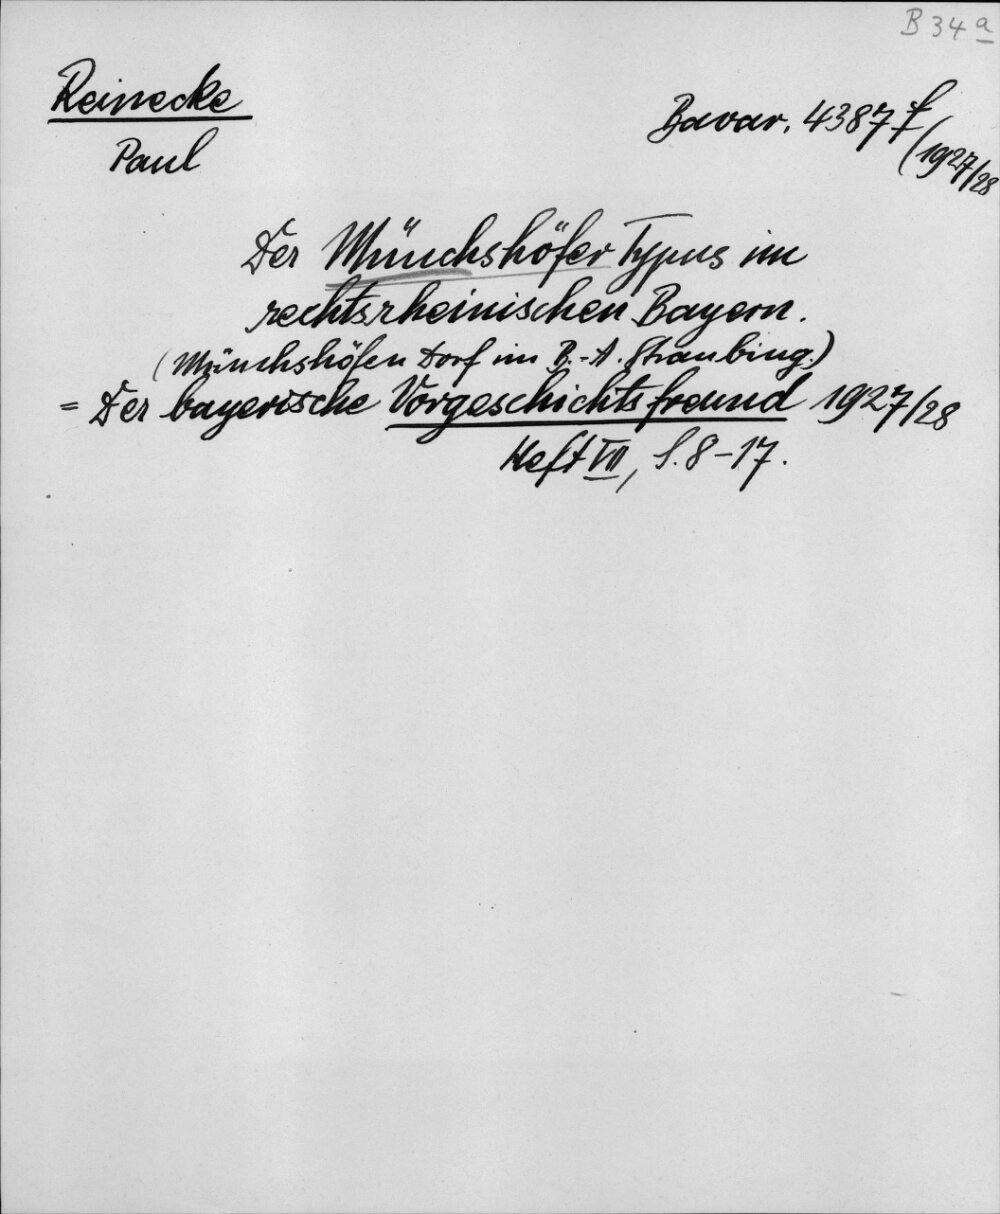 B 34 a
Reinecke
Paul
Bavar. 4387 f
(1927/28
Der Münchshöfer Typus im
rechtsrheinischen Bayern.
(Münchshöfen Dorf im B.-A. Straubing.)
= Der bayerische Vorgeschichtsfreund 1927/28
Heft VII, S. 8-17.